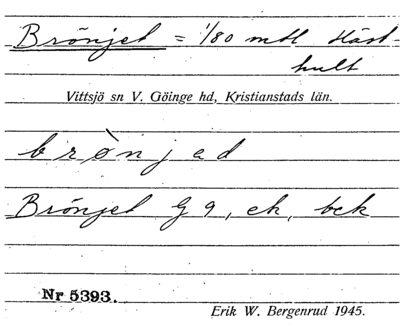 Brönjet = 1/80 mtl Häst-
hult
Vittsjö sn V. Göinge hd, Kristianstads län.
brònjad
Brönjet G 9, ek, bck
Nr 5393.
Erik W. Bergenrud 1945.